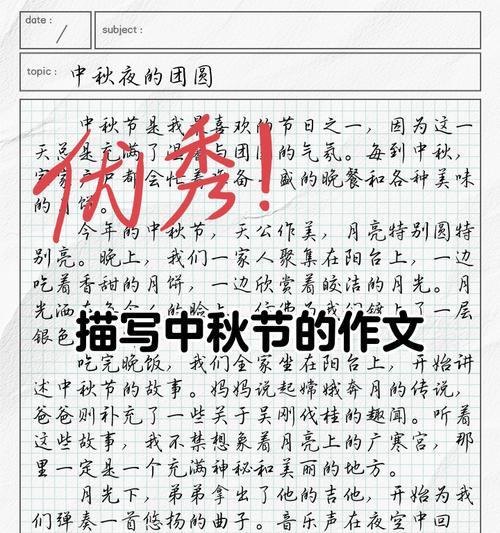 date :
subject :
topic : 中秋夜的团圆
中秋节是我最喜欢的节日之一，因为这一
天总是充满了温馨与团圆的气氛。每到中秋，
家家户户都会忙着准备丰盛的晚餐和各种美味
的月饼。
优秀！
今年的中秋节，天公作美，月亮特别圆特
别亮。晚上，我们一家人聚集在阳台上，一边
吃着香甜的月饼，一边欣赏着皎洁的月光。月
光洒在每个人的脸上，仿佛为我们镀上了一层
银色
描写中秋节的作文
吃完晚饭，我们全家坐在阳台上，开始讲
述中秋节的故事。妈妈说起嫦娥奔月的传说，
爸爸则补充了一些关于吴刚伐桂的趣闻。听着
这些故事，我不禁想象着月亮上的广寒宫，那
里一定是一个充满神秘和美丽的地方。
月光下，弟弟拿出了他的吉他，开始为我
们弹奏一首悠扬的曲子。音乐声在夜空中回